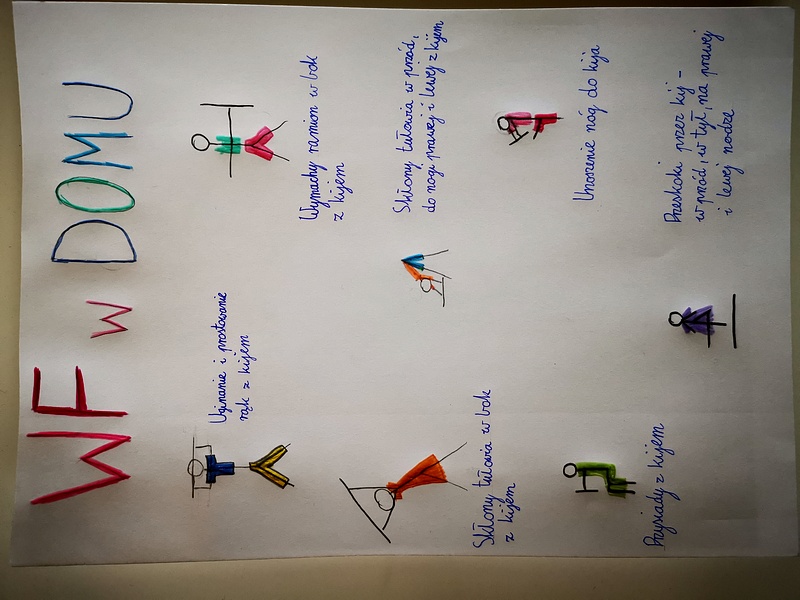 WF w DOMU
Uginanie i prostowanie
rąk z kijem
Wymachy ramion w bok
z kijem
Skłony tułowia w przód,
do nogi prawej i lewej z kijem
Skłony tułowia w bok
z kijem
Unoszenie nóg do kija
Przysiady z kijem
Przeskoki przez kij -
w przód, w tył, na prawej
i lewej nodze